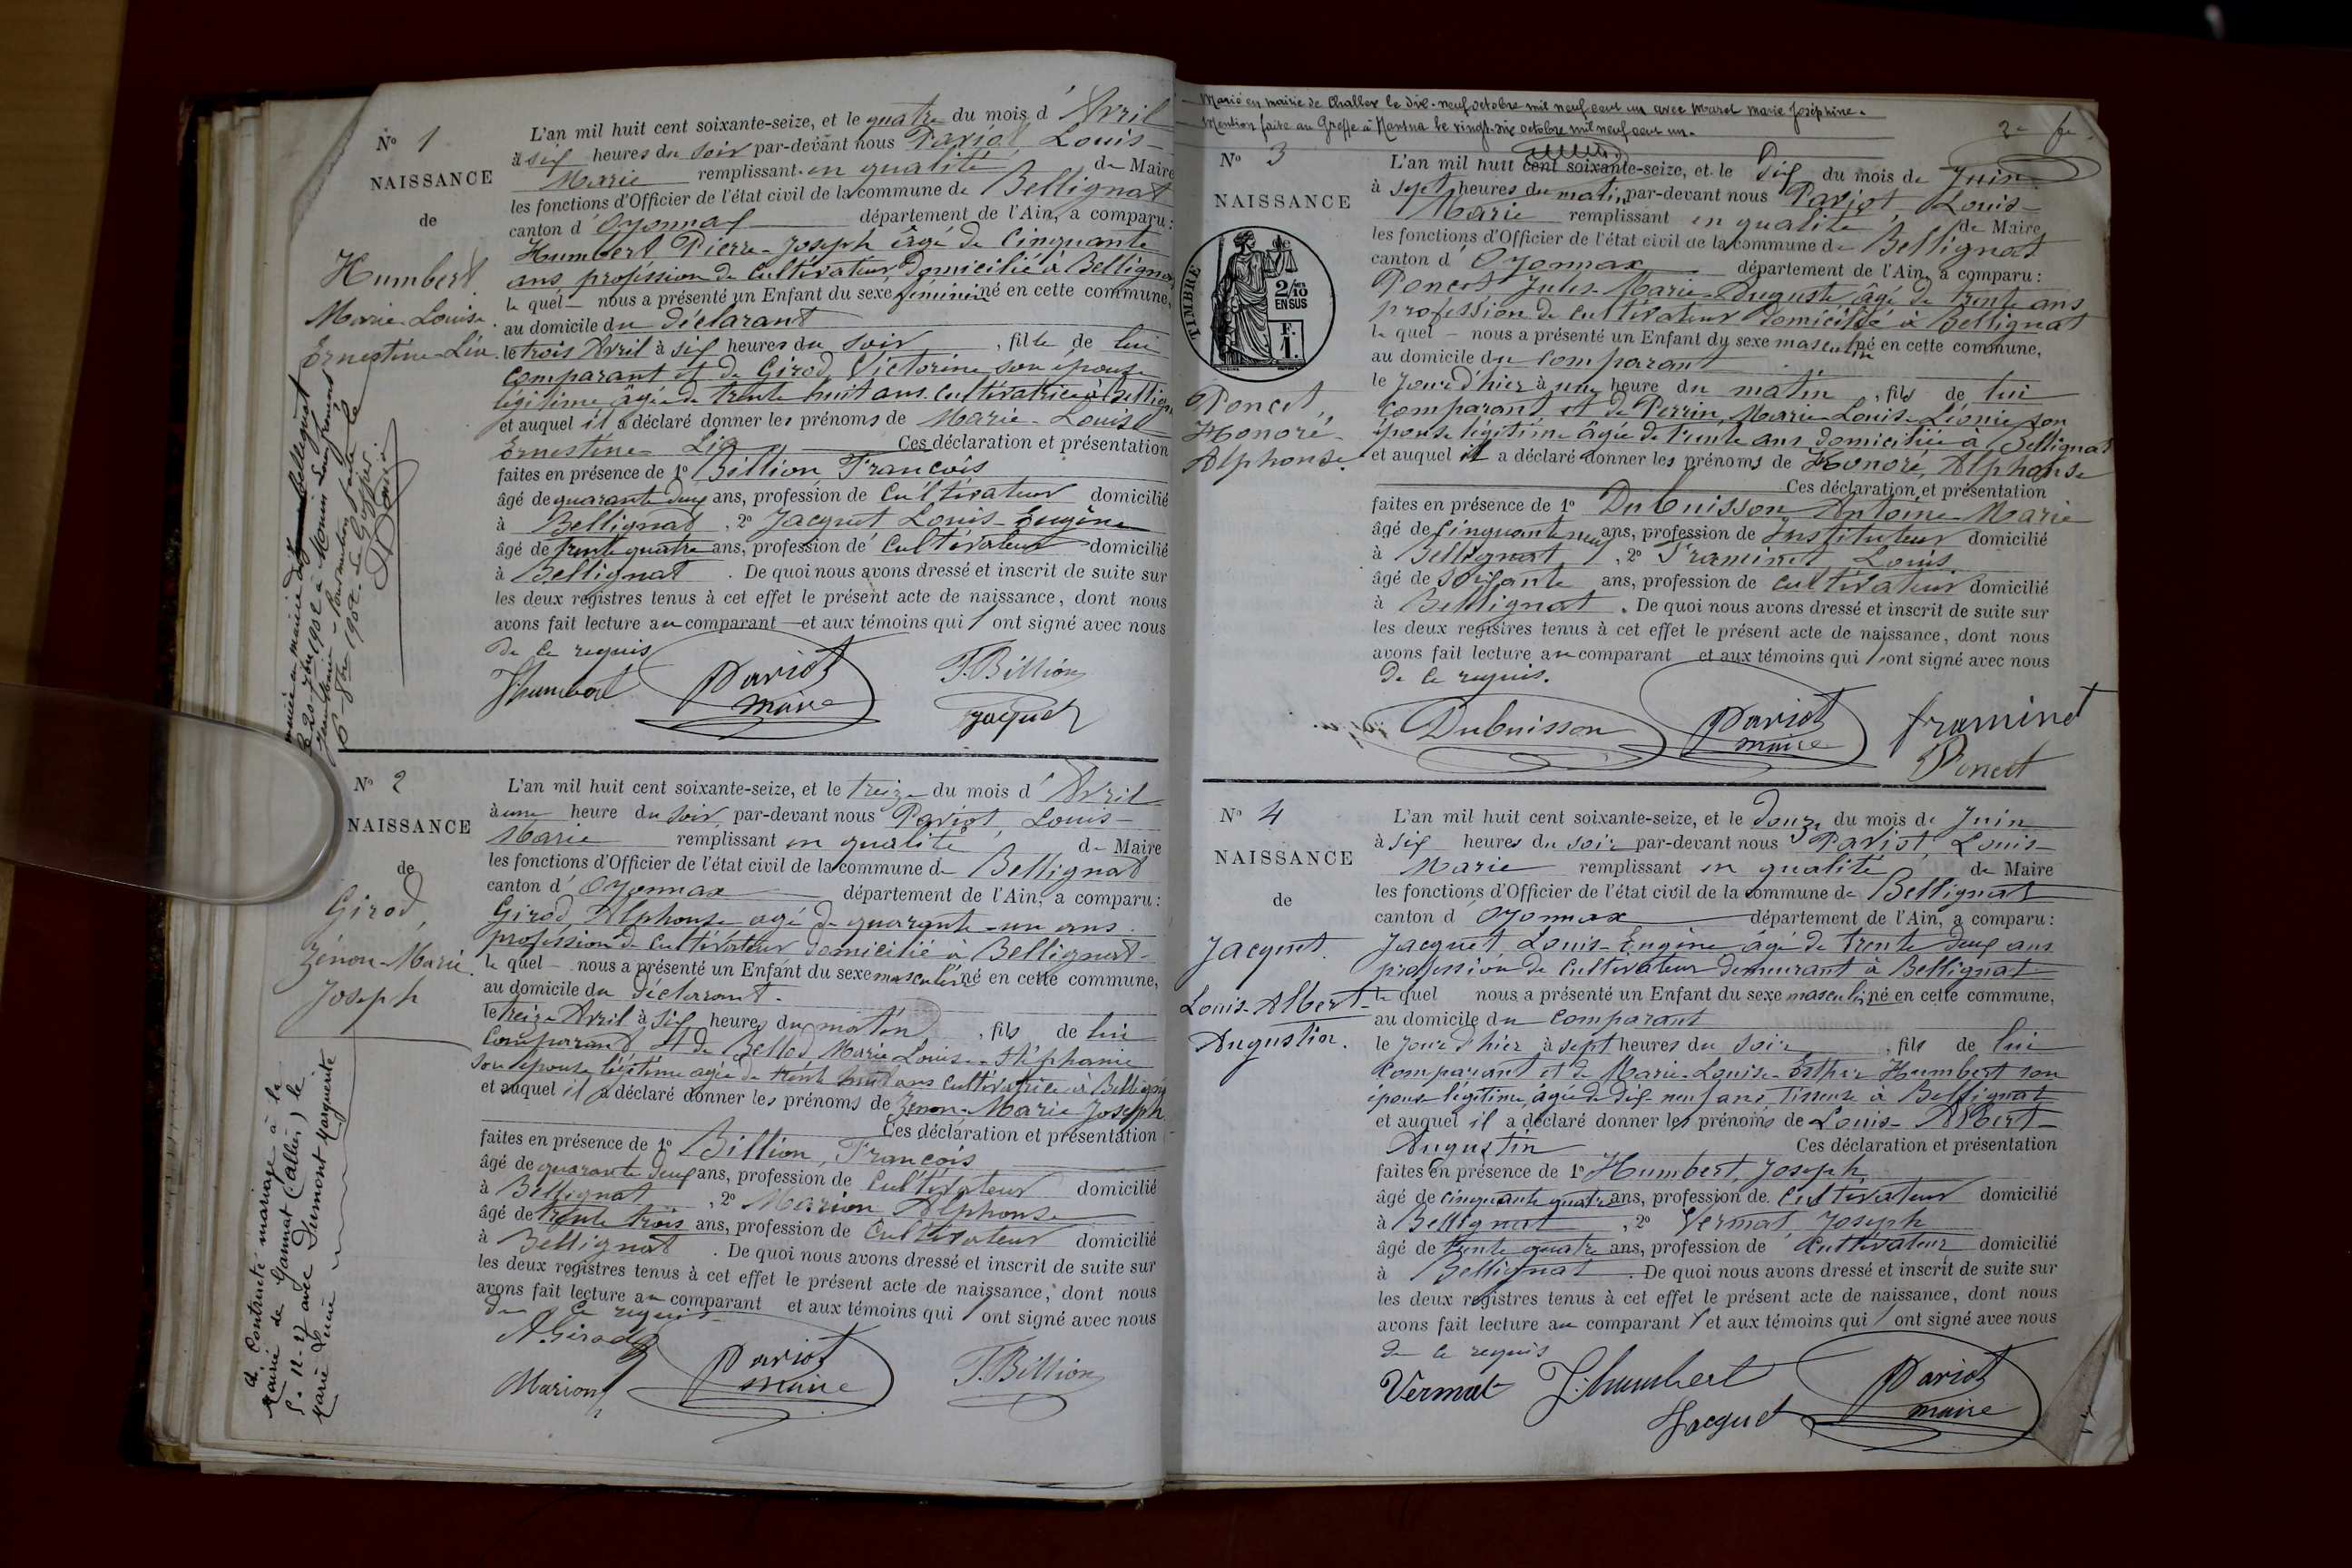 N° 1
NAISSANCE
de
Humbert
Marie-Louise
Ernestine-Lia
L'an mil huit cent soixante-seize, et le quatre du mois d'Avril
à six heures du soir par-devant nous Pariot, Louis-
Marie remplissant en qualité de Maire
les fonctions d'Officier de l'état civil de la commune de Bellignat
canton d'Oyonnax département de l'Ain, a comparu :
Humbert Pierre-Joseph âgé de Cinquante
ans profession de Cultivateur domicilié à Bellignat
le quel nous a présenté un Enfant du sexe féminin né en cette commune,
au domicile du déclarant
le trois Avril à six heures du soir, fille de lui
comparant et de Girod, Victorine son épouse
légitime âgée de trente huit ans. Cultivatrice à Bellign
et auquel il a déclaré donner les prénoms de Marie-Louise
Ernestine-Lia Ces déclaration et présentation
faites en présence de 1° Billion, François
âgé de quarante deux ans, profession de Cultivateur domicilié
à Bellignat, 2° Jacquet Louis-Eugène
âgé de trente quatre ans, profession de Cultivateur domicilié
à Bellignat. De quoi nous avons dressé et inscrit de suite sur
les deux registres tenus à cet effet le présent acte de naissance, dont nous
avons fait lecture au comparant et aux témoins qui ont signé avec nous
de ce requis
J. humbert Pariot maire F. Billion
Jacquet
N° 2
NAISSANCE
de
Girod,
Zénon-Marie
Joseph
a Contracté mariage à la
Mairie de Gannat (Allier) le
5-12-27 avec Dumont Marguerite
Marie Lucie
L'an mil huit cent soixante-seize, et le treize du mois d'Avril
à une heure du soir par-devant nous Pariot, Louis-
Marie remplissant en qualité de Maire
les fonctions d'Officier de l'état civil de la commune de Bellignat
canton d'Oyonnax département de l'Ain, a comparu :
Girod, Alphonse agé de quarante-un ans
profession de Cultivateur domicilié à Bellignat-
le quel nous a présenté un Enfant du sexe masculin né en cette commune,
au domicile du déclarant.
le treize Avril à six heures du matin, fils de lui
comparant et de Bellod Marie Louise-Stéphanie
son épouse légitime agée de trente huit ans Cultivatrice à Bellign
et auquel il a déclaré donner les prénoms de Zénon-Marie Joseph
Ces déclaration et présentation
faites en présence de 1° Billion, François
âgé de quarante deux ans, profession de Cultivateur domicilié
à Bellignat, 2° Marion Alphonse
âgé de trente trois ans, profession de Cultivateur domicilié
à Bellignat. De quoi nous avons dressé et inscrit de suite sur
les deux registres tenus à cet effet le présent acte de naissance, dont nous
avons fait lecture au comparant et aux témoins qui ont signé avec nous
de ce requis
A. Girod
Marion Pariot maire F. Billion
Marié en mairie de Challex le dix-neuf octobre mil neuf cent un avec Marie Joséphine.
Mention faite au Greffe à Nantua le vingt-six octobre mil neuf cent un.
N° 3
NAISSANCE
de
TIMBRE
2/10
EN SUS
F.
1.
Poncet,
Honoré-
Alphonse.
L'an mil huit cent soixante-seize, et le Dix du mois de Juin
à sept heures du matin, par-devant nous Pariot, Louis-
Marie remplissant en qualité de Maire
les fonctions d'Officier de l'état civil de la commune de Bellignat
canton d'Oyonnax département de l'Ain, a comparu :
Poncet Jules-Marie-Auguste âgé de trente ans
profession de Cultivateur domicilié à Bellignat
le quel nous a présenté un Enfant du sexe masculin né en cette commune,
au domicile du comparant
le Jour d'hier à une heure du matin, fils de lui
comparant, et de Perrin, Marie-Louise-Léonie son
épouse légitime âgée de trente ans domiciliée à Bellignat
et auquel il a déclaré donner les prénoms de Honoré, Alphonse
Ces déclaration et présentation
faites en présence de 1° Dubuisson Antoine-Marie
âgé de Cinquante neuf ans, profession de Instituteur domicilié
à Bellignat, 2° Framinet Louis
âgé de soixante ans, profession de Cultivateur domicilié
à Bellignat. De quoi nous avons dressé et inscrit de suite sur
les deux registres tenus à cet effet le présent acte de naissance, dont nous
avons fait lecture au comparant et aux témoins qui ont signé avec nous
de ce requis.
Dubuisson Pariot maire framinet
Poncet
N° 4
NAISSANCE
de
Jacquet.
Louis-Albert-
Augustin.
L'an mil huit cent soixante-seize, et le Douze du mois de Juin
à six heures du soir par-devant nous Pariot, Louis-
Marie remplissant en qualité de Maire
les fonctions d'Officier de l'état civil de la commune de Bellignat
canton d'Oyonnax département de l'Ain, a comparu :
Jacquet Louis-Eugène âgé de trente deux ans
profession de Cultivateur demeurant à Bellignat
le quel nous a présenté un Enfant du sexe masculin né en cette commune,
au domicile du comparant
le Jour d'hier à sept heures du soir, fils de lui
comparant et de Marie-Louise-Esther Humbert son
épouse légitime, âgée de dix neuf ans, Tisseuse à Bellignat
et auquel il a déclaré donner les prénoms de Louis-Albert-
Augustin Ces déclaration et présentation
faites en présence de 1° Humbert, Joseph
âgé de cinquante quatre ans, profession de Cultivateur domicilié
à Bellignat, 2° Vermat Joseph
âgé de trente quatre ans, profession de Cultivateur domicilié
à Bellignat. De quoi nous avons dressé et inscrit de suite sur
les deux registres tenus à cet effet le présent acte de naissance, dont nous
avons fait lecture au comparant et aux témoins qui ont signé avec nous
de ce requis
Vermat J. humbert Pariot maire
Jacquet